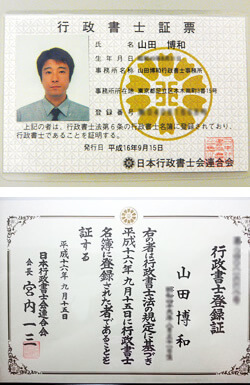 行政書士証票
氏名 山田 博和
生年月日
事務所名称 山田博和行政書士事務所
事務所所在地 東京都足立区本木南町9番15号
登録番号
上記の者は、行政書士法第6条の行政書士名簿に登録されており、
行政書士であることを証明する。
発行日 平成16年9月15日
日本行政書士会連合会
行政書士登録証
山田博和
右の者は行政書士法の規定に基づき
平成十六年九月十五日に行政書士
名簿に登録された者であることを
証する
平成十六年九月十五日
日本行政書士会連合会
会長 宮内一三